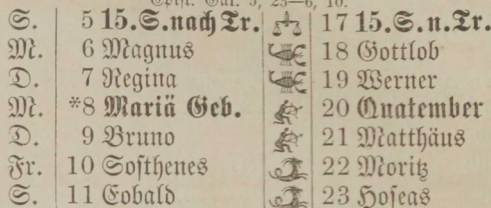 Epist. Gal. 5, 25—6, 10.
S. 5 15. S. nach Tr. 17 15. S. n. Tr.
M. 6 Magnus 18 Gottlob
D. 7 Regina 19 Werner
M. *8 Mariä Geb. 20 Quatember
D. 9 Bruno 21 Matthäus
Fr. 10 Sosthenes 22 Moritz
S. 11 Cobald 23 Hoseas